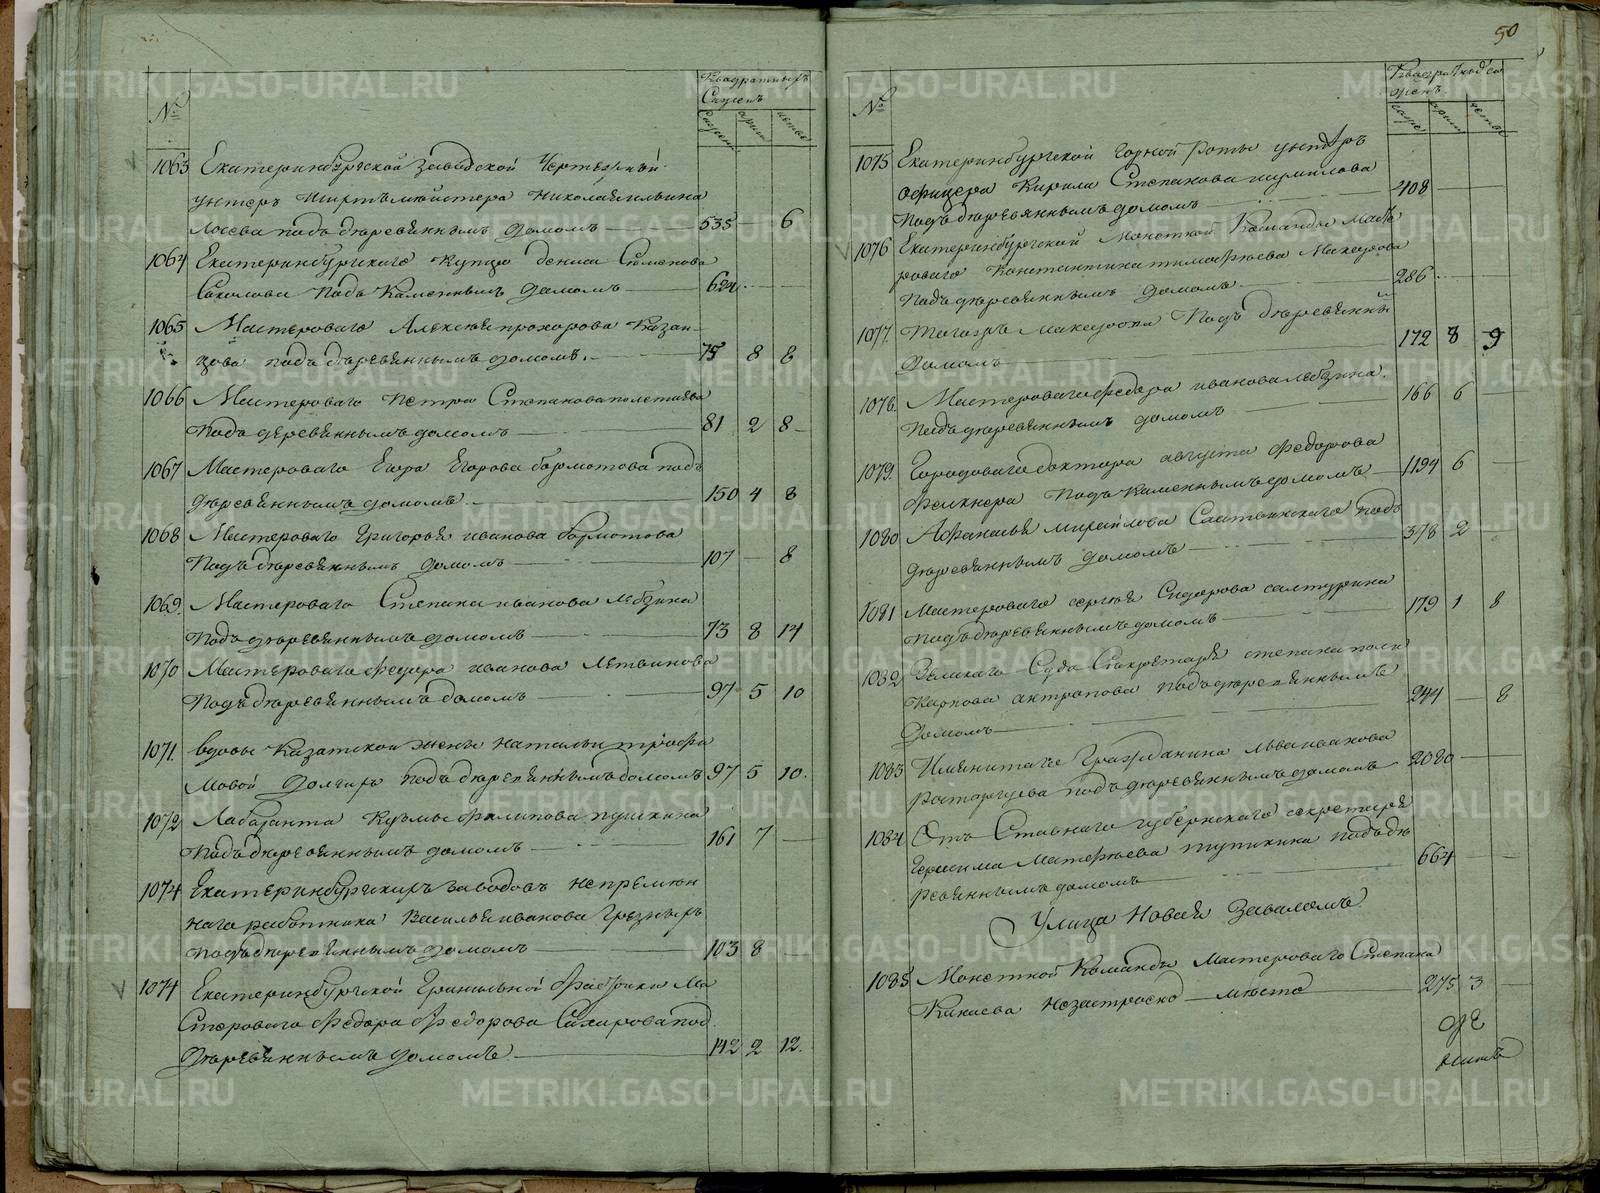 №
Квадратныхъ
Сажень
сажен.
арши
четвер
1063 Екатеринбургской Заводской Чертежной
унтеръ Шихтъмейстера Николая Ильина
Лосева подъ деревяннымъ домомъ 535 — 6
1064 Екатеринбургскаго купца Дениса Семенова
Соколова подъ Каменнымъ домомъ 624
1065 Мастероваго Алексея Прохорова Казан-
цова подъ деревяннымъ домомъ. 75 8 8
1066 Мастероваго Петра Степанова Полетаева
подъ деревяннымъ домомъ 81 2 8
1067 Мастероваго Егора Егорова Бармотова подъ
деревяннымъ домомъ 150 4 8
1068 Мастероваго Григорья Иванова Бармотова
подъ деревяннымъ домомъ 107 — 8
1069. Мастероваго Степана Иванова Лебзина
подъ деревяннымъ домомъ 73 8 14
1070 Мастероваго Федора Иванова Летвинова
подъ деревяннымъ домомъ 97 5 10
1071. вдовы Казатской жены Натальи Трофи
мовой подъ деревяннымъ домомъ 97 5 10.
1072 Лабаранта Кузмы Филипова Пушкина
подъ деревяннымъ домомъ 161 7 —
1074 Екатеринбургскихъ заводовъ непремен
наго работника Василья Иванова Грезныхъ
подъ деревяннымъ домомъ 103 8
1074 Екатеринбургской Гранильной Фабрики Ма
стероваго Федора Федорова Сахарова под
деревяннымъ домомъ 142 2 12.
50
№
Квадратныхъ са
жень.
саже
арши
четве
1075 Екатеринбургской горной роты унтеръ
офицера Кирила Степанова Шумилова
подъ деревяннымъ домомъ 408
1076 Екатеринбургской Монетной Команды Масте
роваго Константина Тимофеева Макарова
подъ деревяннымъ домомъ 286
1077. Тогожъ Макарова подъ деревянны
домомъ 172 8 9
1078. Мастероваго Федора Иванова Лебзина.
подъ деревяннымъ домомъ 166 6
1079. Городоваго доктора Августа Федорова
Фелкнера подъ Каменнымъ домомъ 1194 6
1080 Афанасья Михайлова подъ
деревяннымъ домомъ 378 2
1081 Мастероваго Сергея Сидарова Салтурина
подъ деревяннымъ домомъ 179 1 8
1082 Земскаго Суда Секретаря Степана Поли
карпова Антропова подъ деревяннымъ
домомъ 244 — 8
1083 Имянитаго Гражданина Льва Иванова
Расторгуева подъ деревяннымъ домомъ 2080
1084 Отъ Ставнаго губернскаго секретаря
Герасима Матвеева Тупикина подъ де
ревяннымъ домомъ 664
Улица Новая Заваломъ
1085 Монетной Команды Мастероваго Степана
Канаева незастроено место 275 3